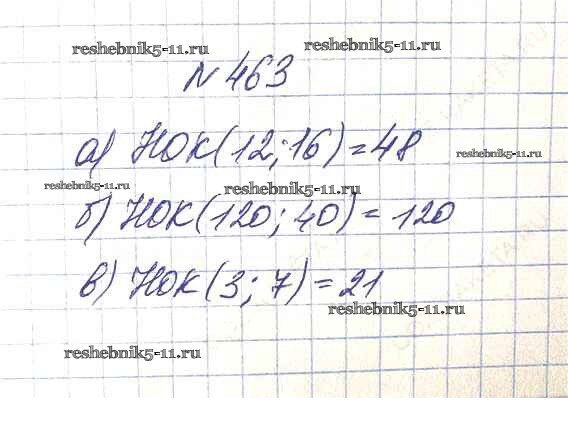 reshebnik5-11.ru reshebnik5-11.ru
№ 463
а) НОК(12;16)=48 reshebnik5-11.ru
reshebnik5-11.ru reshebnik5-11.ru
б) НОК(120; 40) = 120
в) НОК(3; 7) = 21
reshebnik5-11.ru
reshebnik5-11.ru